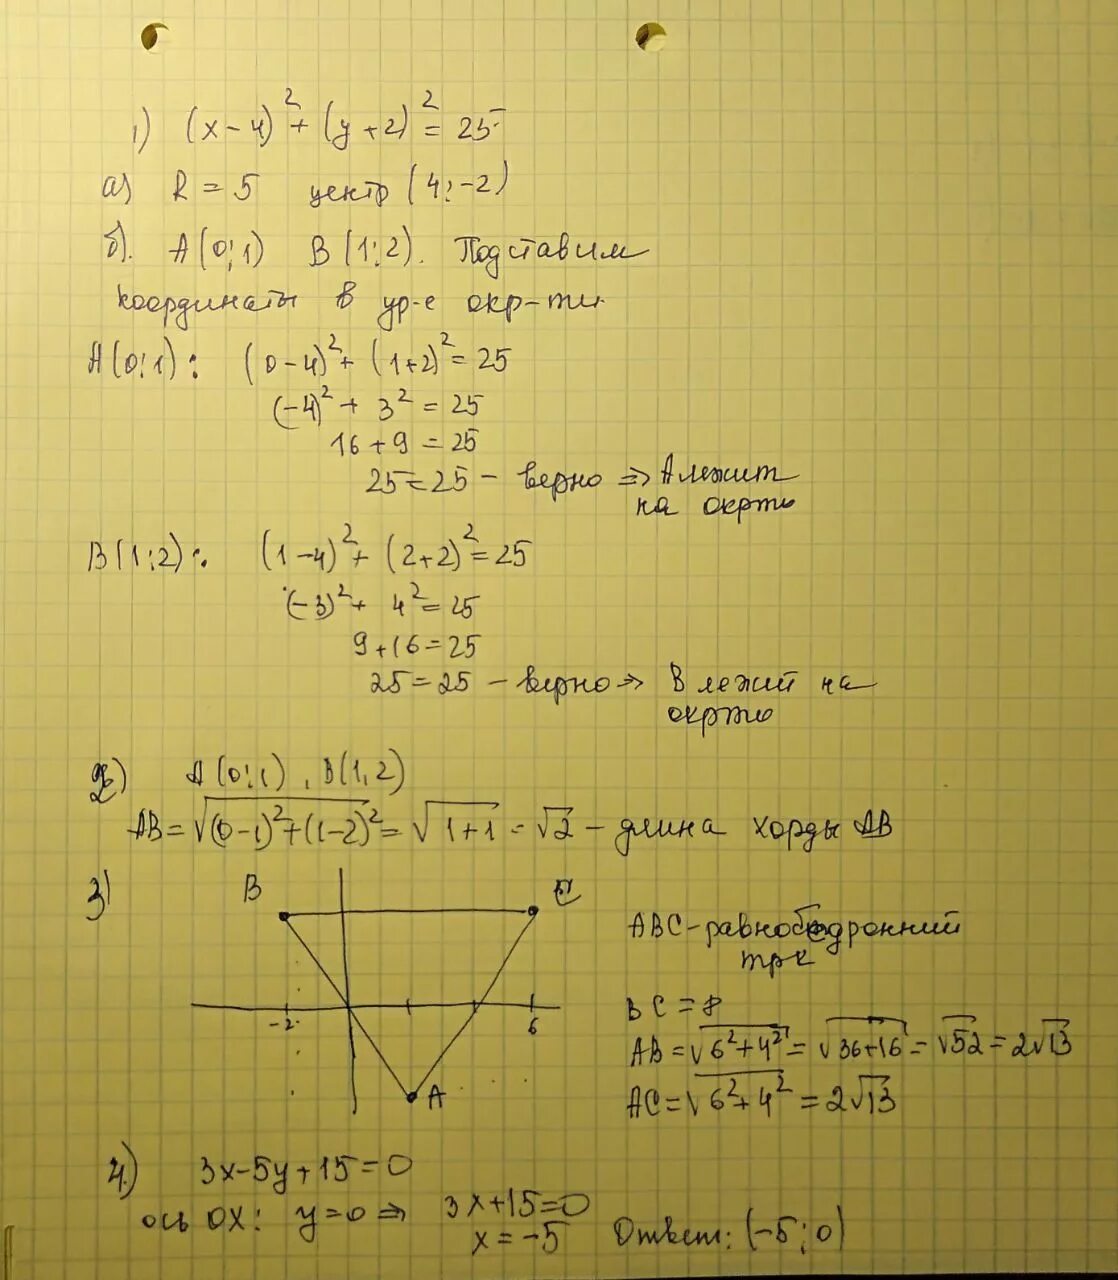 1) (x-4)² + (y+2)² = 25
а) R = 5 центр (4;-2)
б). A(0;1) B(1;2). Подставим
координаты в ур-е окр-ти
A(0;1): (0-4)² + (1+2)² = 25
(-4)² + 3² = 25
16 + 9 = 25
25 = 25 - верно ⇒ A лежит
на окрти
B(1;2): (1-4)² + (2+2)² = 25
(-3)² + 4² = 25
9+16=25
25 = 25 - верно ⇒ B лежит на
окрти
2) A(0;1), B(1,2)
AB = √((0-1)²+(1-2)²) = √(1+1) = √2 - длина хорды AB
3)
B C
-2 6
A
ABC-равнобедронний
трк
BC = 8
AB = √(6²+4²) = √(36+16) = √52 = 2√13
AC = √(6²+4²) = 2√13
4.) 3x-5y+15=0
ось OX: y=0 ⇒ 3x+15=0
x = -5 Ответ: (-5;0)